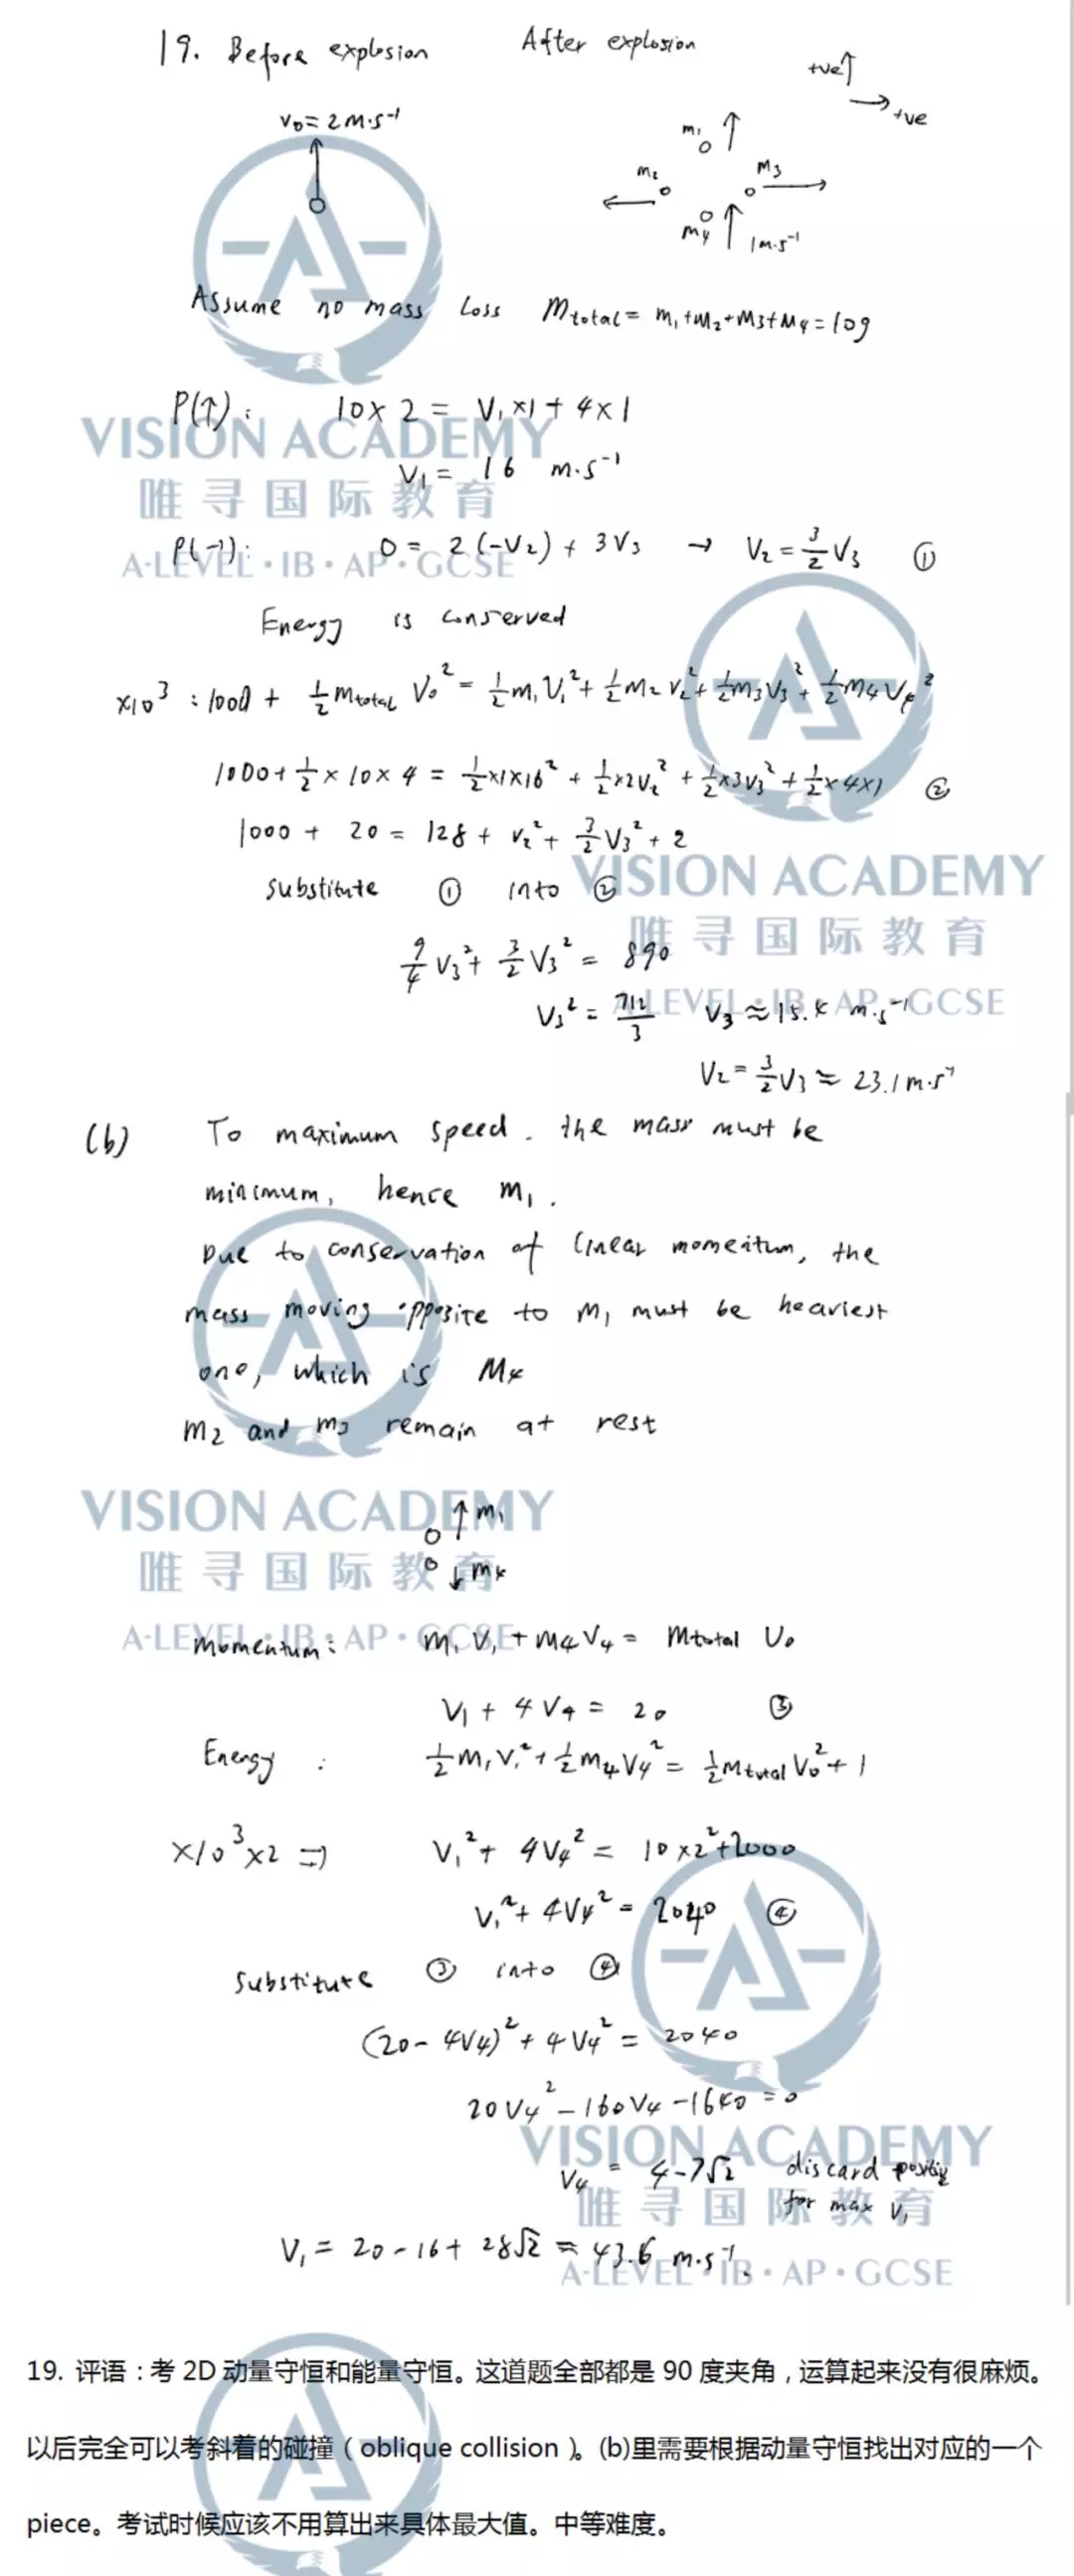 19. Before explosion After explosion
+ve↑
→ +ve
v₀ = 2 m·s⁻¹
m₁ ↑
m₂ m₃
m₄ ↑ 1 m·s⁻¹
Assume no mass loss Mtotal = m₁+m₂+m₃+m₄ = 10g
P(↑): 10×2 = V₁×1 + 4×1
VISION ACADEMY
V₁ = 16 m·s⁻¹
唯寻国际教育
P(→): 0 = 2(-V₂) + 3V₃ → V₂ = 3/2 V₃ ①
A-LEVEL·IB·AP·GCSE
Energy is conserved
×10³ : 1000 + ½ mtotal V₀² = ½m₁V₁² + ½m₂V₂² + ½m₃V₃² + ½m₄V₄²
1000 + ½×10×4 = ½×1×16² + ½×2V₂² + ½×3V₃² + ½×4×1 ②
1000 + 20 = 128 + V₂² + 3/2 V₃² + 2
VISION ACADEMY
substitute ① into ②
唯寻国际教育
9/4 V₃² + 3/2 V₃² = 890
A-LEVEL·IB·AP·GCSE
V₃² = 712/3 V₃ ≈ 15.4 m·s⁻¹
V₂ = 3/2 V₃ ≈ 23.1 m·s⁻¹
(b) To maximum speed. the mass must be
minimum, hence m₁.
Due to conservation of linear momentum, the
mass moving opposite to m₁ must be heaviest
one, which is M₄
m₂ and m₃ remain at rest
VISION ACADEMY
↑ m₁
唯寻国际教育
↓ m₄
A-LEVEL·IB·AP·GCSE
Momentum: m₁V₁ + m₄V₄ = Mtotal V₀
V₁ + 4V₄ = 20 ③
Energy : ½m₁V₁² + ½m₄V₄² = ½Mtotal V₀² + 1
×10³×2 ⇒ V₁² + 4V₄² = 10×2² + 2000
V₁² + 4V₄² = 2040 ④
Substitute ③ into ④
(20-4V₄)² + 4V₄² = 2040
20V₄² - 160V₄ - 1640 = 0
VISION ACADEMY
V₄ = 4-7√2 discard positive
for max V₁
唯寻国际教育
V₁ = 20-16+28√2 ≈ 43.6 m·s⁻¹.
A-LEVEL·IB·AP·GCSE
19. 评语：考 2D 动量守恒和能量守恒。这道题全部都是 90 度夹角，运算起来没有很麻烦。
以后完全可以考斜着的碰撞（oblique collision）。(b)里需要根据动量守恒找出对应的一个
piece。考试时候应该不用算出来具体最大值。中等难度。